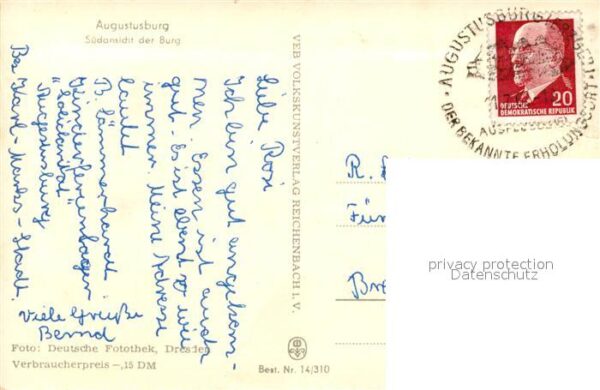 Augustusburg
Südansicht der Burg
Liebe Rosi
Ich bin gut angekom-
men. Essen ist auch
gut. Es ist ebend so wie
immer. Meine Adresse
lautet
B. Lämmerhardt
Kinderferienlager
"Solidarität"
Augustusburg
Bez Karl-Marx-Stadt.
Viele Grüße
Bernd
Foto: Deutsche Fotothek, Dresden
Verbraucherpreis -,15 DM
VEB VOLKSKUNSTVERLAG REICHENBACH i. V.
Best. Nr. 14/310
AUGUSTUSBURG (ERZGEB.)
DER BEKANNTE ERHOLUNGSORT
DEUTSCHE
DEMOKRATISCHE REPUBLIK
20
R.
Fün
Bre
privacy protection
Datenschutz